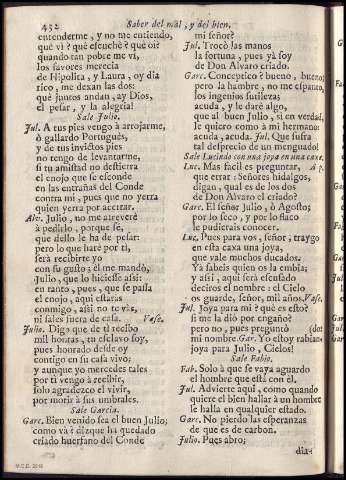 452
Saber del mal, y del bien,
entenderme, y no me entiendo,
què vi? què escuchè? què oì?
quando tan pobre me vi,
los favores merecia
de Hipolita, y Laura, oy dia
rico, me dexan las dos:
què juntos andan, ay Dios,
el pesar, y la alegria!
Sale Julio.
Jul. A tus pies vengo à arrojarme,
ò gallardo Portuguès,
y de tus invictos pies
no tengo de levantarme,
si tu amistad no destierra
el enojo que se esconde
en las entrañas del Conde
contra mi, pues que no yerra
quien yerra por acertar.
Alv. Julio, no me atreverè
à pedirlo, porque sè,
que dello le ha de pesar:
pero lo que harè por ti,
serà recibirte yo
con su gusto; èl me mandò,
Julio, que lo hiciesse assi:
en tanto, pues, que se passa
el enojo, aqui estaràs
conmigo, assi no te vàs,
ni sales fuera de casa. Vase.
Julio. Digo que de ti recibo
mil honras, tu esclavo soy,
pues honrado desde oy
contigo en su casa vivo;
y aunque yo mercedes tales
por ti vengo à recibir,
solo agradezco el vivir,
por morir à sus umbrales.
Sale Garcia.
Garc. Bien venido sea el buen Julio;
como và? dizque ha quedado
criado huerfano del Conde
mi señor?
Jul. Trocò las manos
la fortuna, pues yà soy
de Don Alvaro criado.
Garc. Conceptico? bueno, bueno;
pero la hambre, no me espanto,
los ingenios sutileza;
acuda, y le darè algo,
que al buen Julio, si en verdad,
le quiero como à mi hermano:
acuda, acuda. Jul. Que sufra
tal desprecio de un menguado!
Sale Lucindo con una joya en una caxa.
Luc. Mas facil es preguntar,
que errar: Señores hidalgos,
digan, qual es de los dos
de Don Alvaro el criado?
Garc. El señor Julio, ò Agosto;
por lo seco, y por lo flaco
le pudierais conocer.
Luc. Pues para vos, señor, traygo
en esta caxa una joya,
que vale muchos ducados.
Yà sabeis quien os la embia;
y assi, aqui serà escusado
deciros el nombre: el Cielo
os guarde, señor, mil años. Vase.
Jul. Joya para mi? què es esto?
si me la diò por engaño?
pero no, pues preguntò
mi nombre. Gar. Yo estoy rabiando:
joya para Julio, Cielos!
Sale Fabio.
Fab. Solo à que se vaya aguardo
el hombre que està con èl.
Jul. Advierte aqui, como quando
quiere el bien hallar à un hombre
le halla en qualquier estado.
Garc. No pierdo las esperanzas
de que es de carbon.
Julio. Pues abro;
dia-